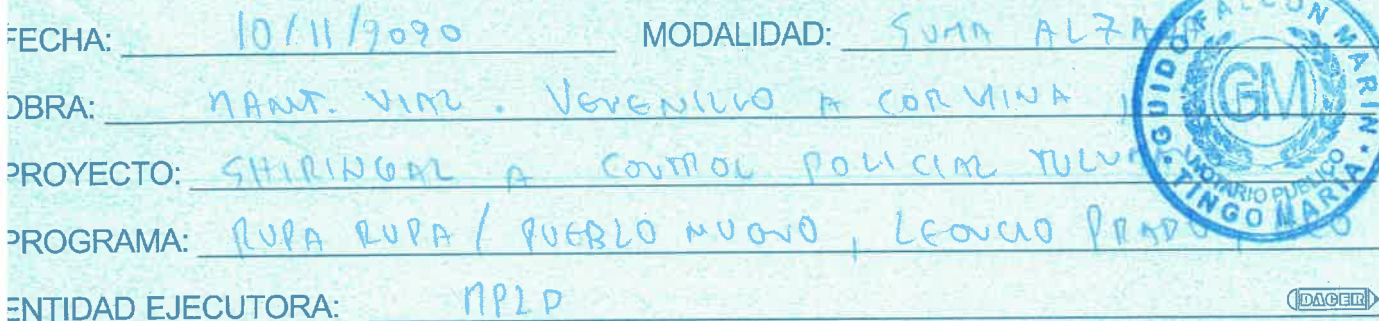 FECHA: 10/11/2020 MODALIDAD: SUMA ALZADA
OBRA: MANT. VIAL. VEVENILLO A CORVINA,
PROYECTO: SHIRINGAL A CONTROL POLICIAL TULUM
PROGRAMA: RUPA RUPA / PUEBLO NUEVO, LEONCIO PRADO, HCO
ENTIDAD EJECUTORA: MPLP
GUIDO FALCON MARIN
GFM
NOTARIO PUBLICO
TINGO MARIA
DACER